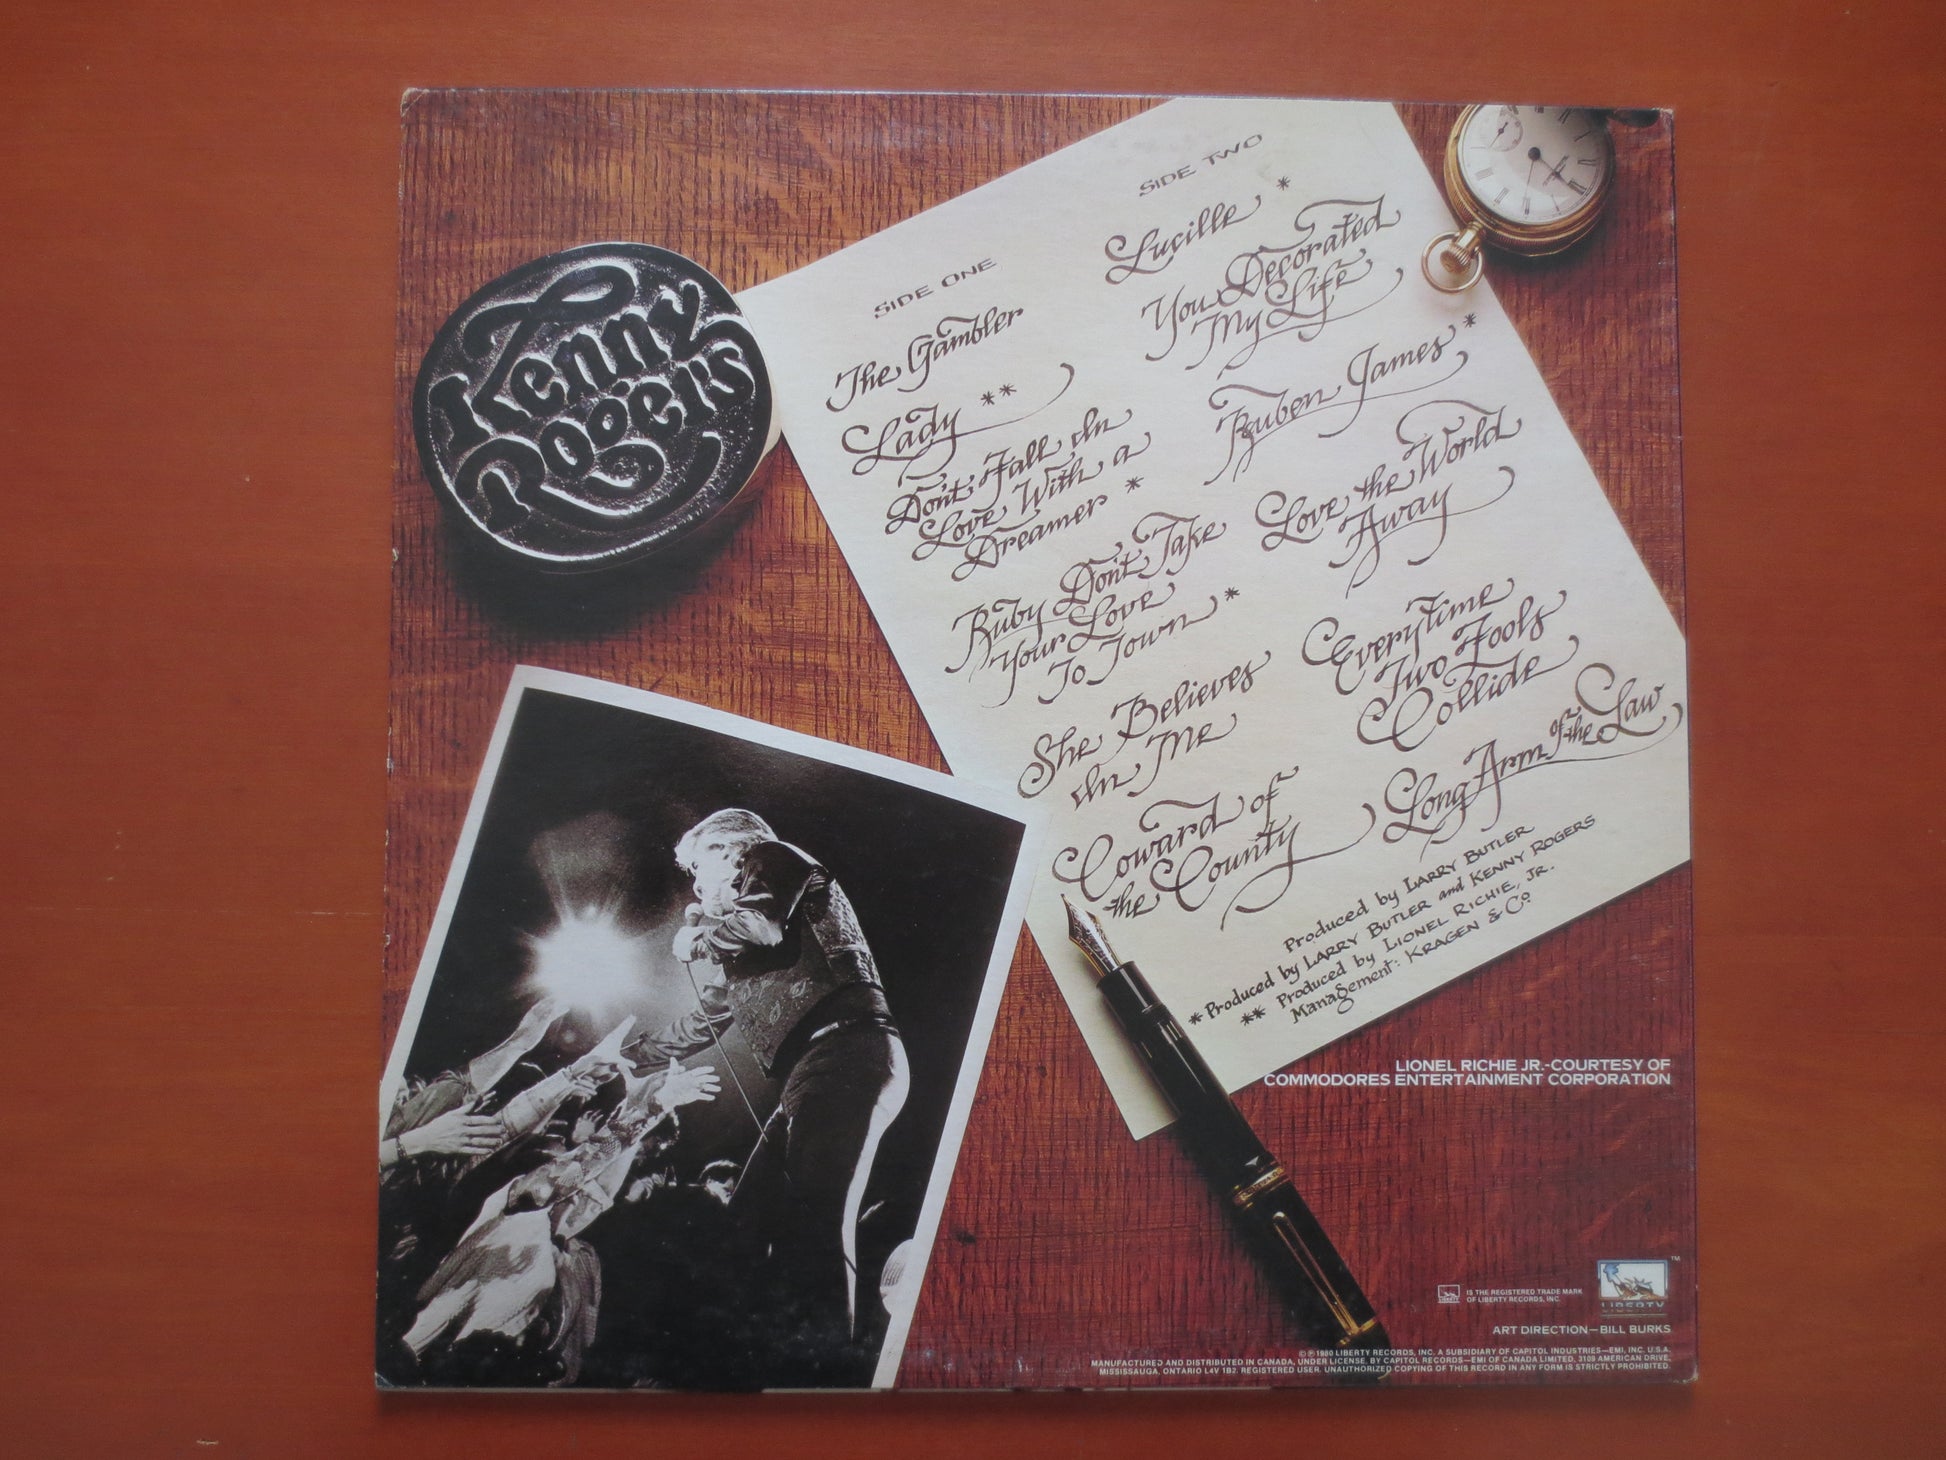 Kenny
Rogers
SIDE ONE
The Gambler
Lady **
Don't Fall In
Love With a
Dreamer *
Ruby Don't Take
Your Love
To Town *
She Believes
In Me
Coward of
the County
SIDE TWO
Lucille *
You Decorated
My Life
Ruben James *
Love the World
Away
Everytime
Two Fools
Collide
Long Arm of the Law
Produced by LARRY BUTLER
* Produced by LARRY BUTLER and KENNY ROGERS
** Produced by LIONEL RICHIE, JR.
Management: KRAGEN & Co.
LIONEL RICHIE JR.-COURTESY OF
COMMODORES ENTERTAINMENT CORPORATION
LIBERTY
IS THE REGISTERED TRADE MARK
OF LIBERTY RECORDS, INC.
LIBERTY
TM
ART DIRECTION—BILL BURKS
© ℗ 1980 LIBERTY RECORDS, INC. A SUBSIDIARY OF CAPITOL INDUSTRIES—EMI, INC. U.S.A.
MANUFACTURED AND DISTRIBUTED IN CANADA, UNDER LICENSE, BY CAPITOL RECORDS—EMI OF CANADA LIMITED, 3109 AMERICAN DRIVE,
MISSISSAUGA, ONTARIO L4V 1B2. REGISTERED USER. UNAUTHORIZED COPYING OF THIS RECORD IN ANY FORM IS STRICTLY PROHIBITED.